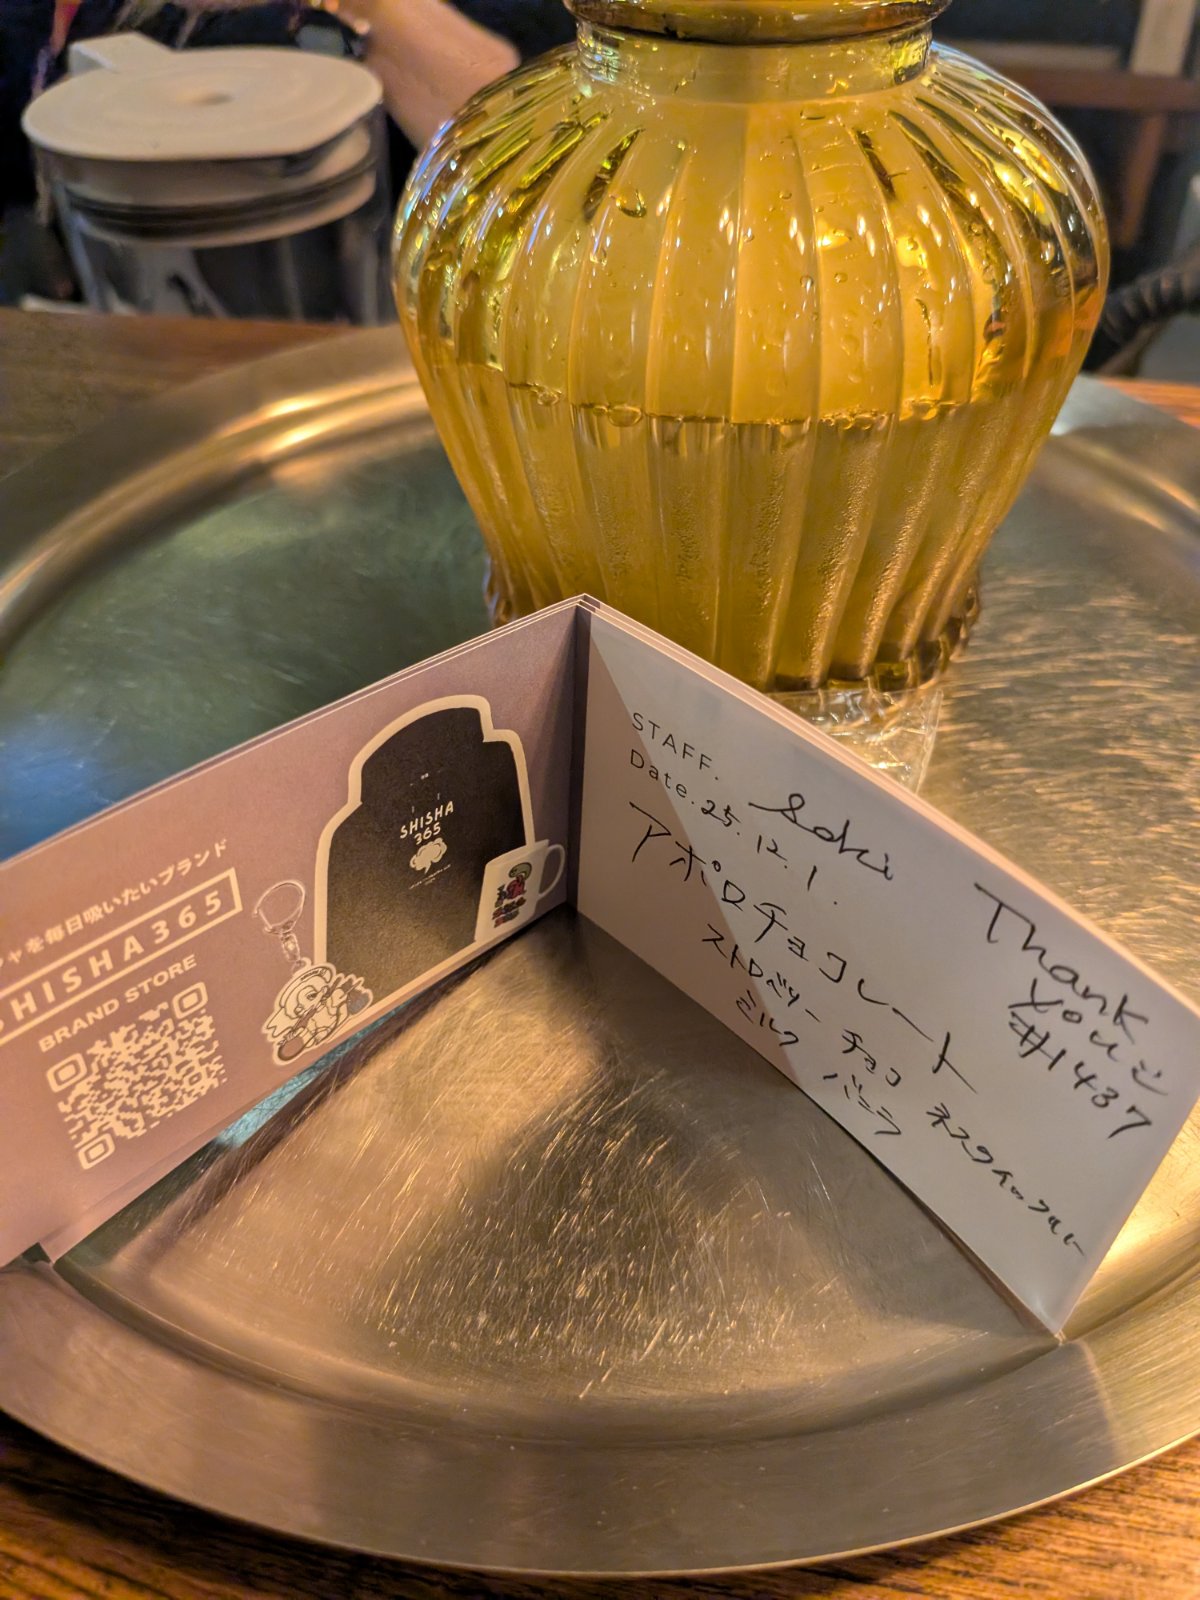 シャを毎日吸いたいブランド
SHISHA365
BRAND STORE
SHISHA
365
STAFF.
Date. 25. 12. 1.
アポロチョコレート
ストロベリー チョコ ネスクイックフルート
ミルク バニラ
Thank
you
#1437